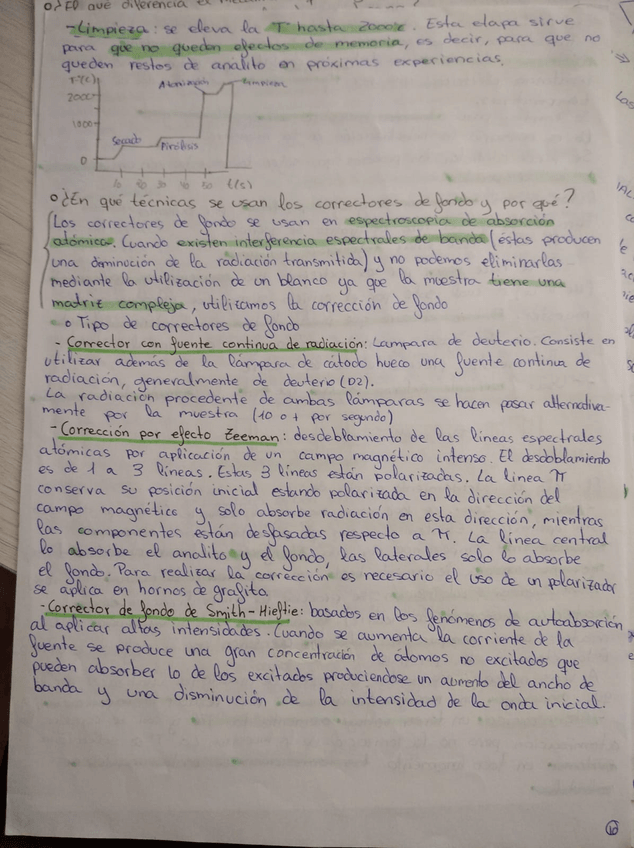 qué diferencia el
-Limpieza: se eleva la T hasta 2000ºc. Esta etapa sirve
para que no queden efectos de memoria, es decir, para que no
queden restos de analito en próximas experiencias.
Tª(c)
2000
1000
0
Secado
Pirólisis
Atomización
Limpieza
t(s)
o¿En qué técnicas se usan los correctores de fondo y por qué?
Los correctores de fondo se usan en espectroscopia de absorción
atómica. Cuando existen interferencia espectrales de banda (éstas producen
una disminución de la radiación transmitida) y no podemos eliminarlas
mediante la utilización de un blanco ya que la muestra tiene una
matriz compleja, utilizamos la corrección de fondo
o Tipo de correctores de fondo
- Corrector con fuente continua de radiación: Lampara de deuterio. Consiste en
utilizar además de la lámpara de cátodo hueco una fuente continua de
radiación, generalmente de deuterio (D2).
La radiación procedente de ambas lámparas se hacen pasar alternativa-
mente por la muestra (10 o + por segundo)
-Corrección por efecto Zeeman: desdoblamiento de las lineas espectrales
atómicas por aplicación de un campo magnético intenso. El desdoblamiento
es de 1 a 3 lineas. Estas 3 lineas están polarizadas. La linea π
conserva su posición inicial estando polarizada en la dirección del
campo magnético y solo absorbe radiación en esta dirección, mientras
las componentes están desfasadas respecto a π. La línea central
lo absorbe el analito y el fondo, las laterales solo lo absorbe
el fondo. Para realizar la corrección es necesario el uso de un polarizador
se aplica en hornos de grafito
-Corrector de fondo de Smith-Hieftie: basados en los fenómenos de autoabsorción
al aplicar altas intensidades. Cuando se aumenta la corriente de la
fuente se produce una gran concentración de átomos no excitados que
pueden absorber lo de los excitados produciendose un aumento del ancho de
banda y una disminución de la intensidad de la onda inicial.
10